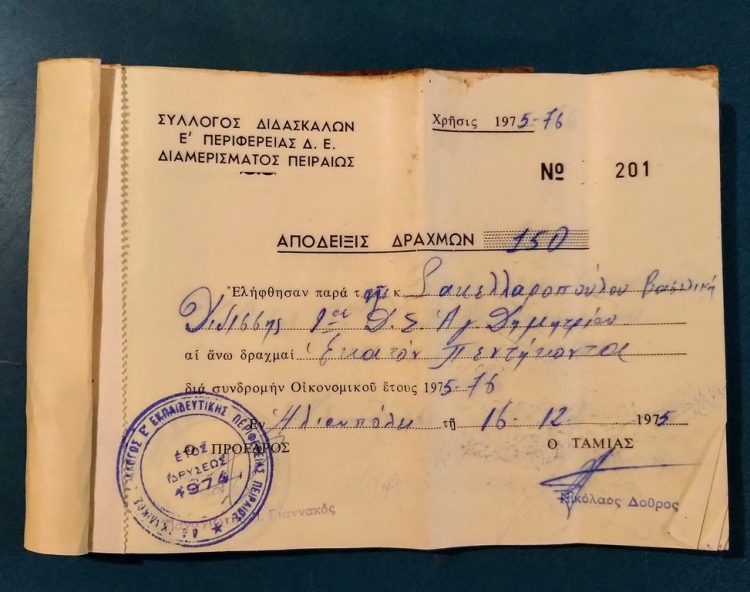 ΣΥΛΛΟΓΟΣ ΔΙΔΑΣΚΑΛΩΝ
Ε' ΠΕΡΙΦΕΡΕΙΑΣ Δ. Ε.
ΔΙΑΜΕΡΙΣΜΑΤΟΣ ΠΕΙΡΑΙΩΣ
Χρῆσις 1975-76
Νο 201
ΑΠΟΔΕΙΞΙΣ ΔΡΑΧΜΩΝ 150
Ἐλήφθησαν παρά τῆς κ. Σακελλαροπούλου Βασιλική
1ου Δ.Σ. Αγ. Δημητρίου
αἱ ἄνω δραχμαί Ἑκατόν Πεντήκοντα
διά συνδρομήν Οἰκονομικοῦ ἔτους 1975-76
Ἐν Ηλιουπόλει τῇ 16-12 1975
Ο ΠΡΟΕΔΡΟΣ Ο ΤΑΜΙΑΣ
ΣΥΛΛΟΓΟΣ Ε' ΕΚΠΑΙΔΕΥΤΙΚΗΣ ΠΕΡΙΦΕΡΕΙΑΣ ΠΕΙΡΑΙΩΣ
ΕΤΟΣ
ΙΔΡΥΣΕΩΣ
1974
Γιαννακός
Νικόλαος Δοθρος